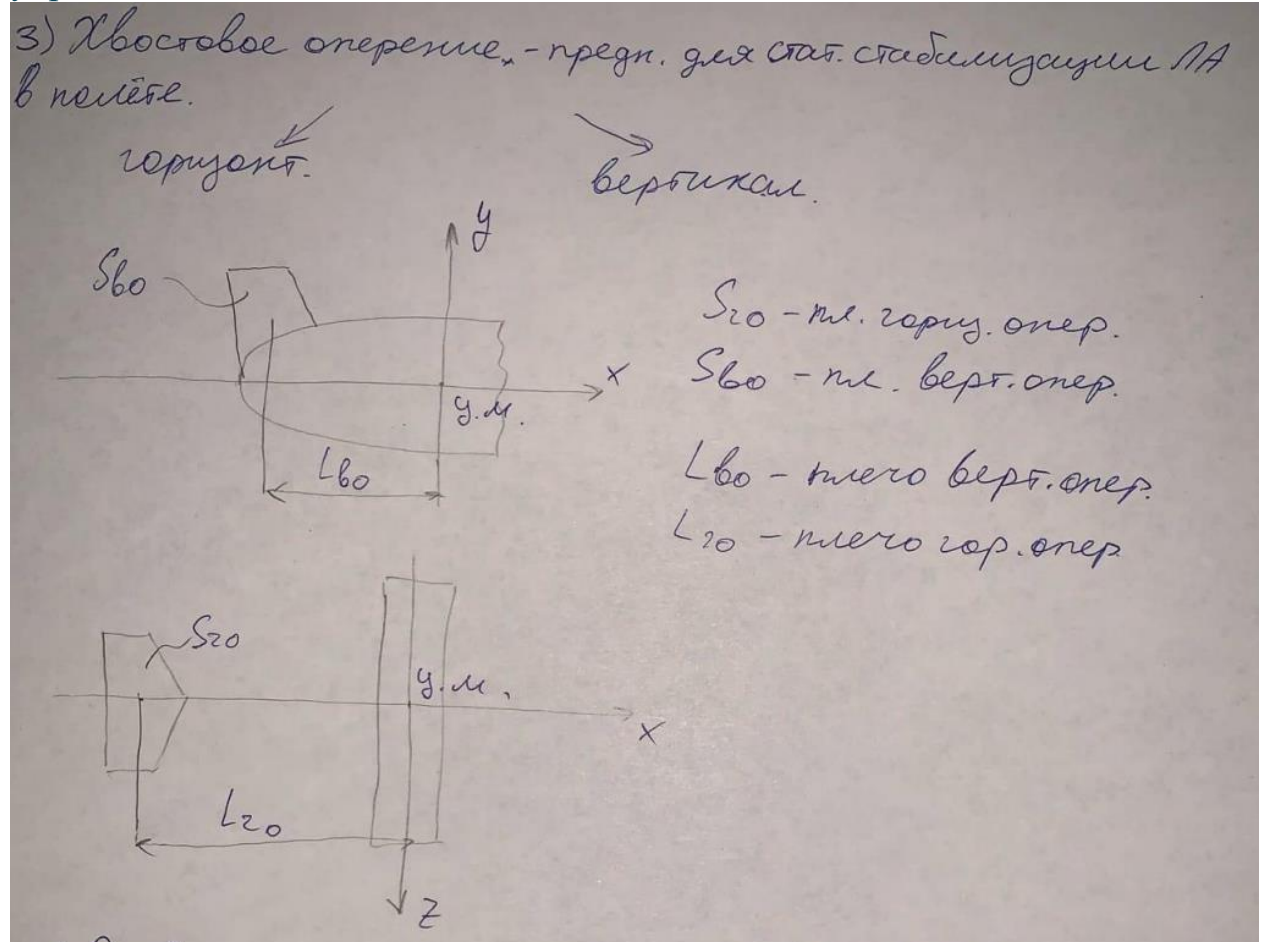 3) Хвостовое оперение, - предн. для стат. стабилизации ЛА
в полёте.
горизонт.
вертикал.
y
Sво
Sго - пл. гориз. опер.
x
Sво - пл. верт. опер.
ц.м.
Lво
Lво - плечо верт. опер.
Lго - плечо гор. опер
Sго
ц.м.
x
Lго
z